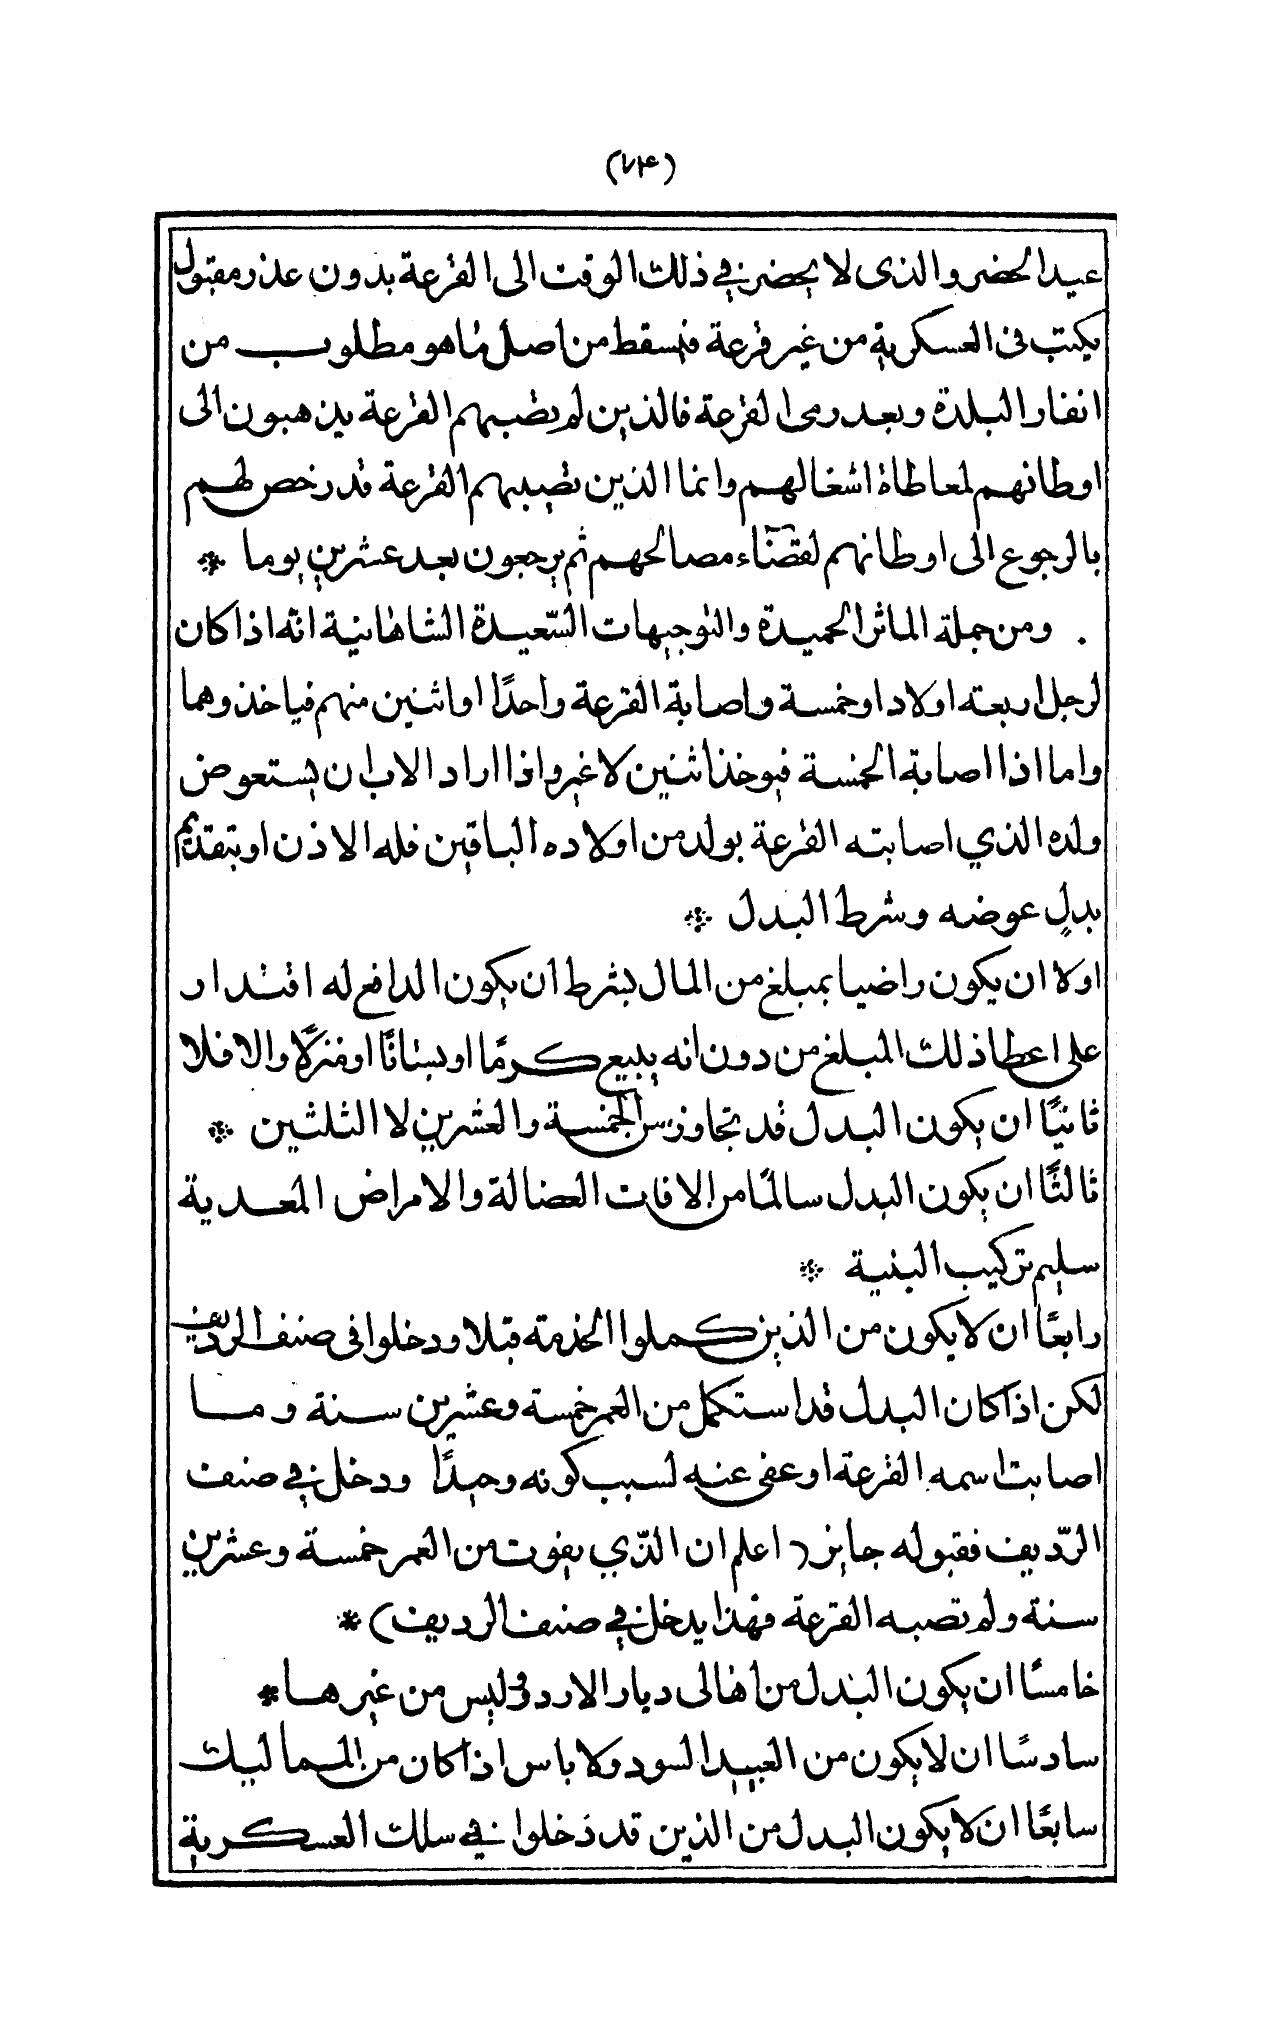 (٧٤)
عيد الخضر والذى لا يحضر في ذلك الوقت الى القرعة بدون عذر مقبول
يكتب فى العسكرية من غير قرعة فيسقط من اصل ما هو مطلوب من
انفار البلدة وبعد رمى القرعة فالذين لم تصبهم القرعة يذهبون الى
اوطانهم لمعاطاة اشغالهم وانما الذين تصيبهم القرعة قد رخص لهم
بالرجوع الى اوطانهم لقضاء مصالحهم ثم يرجعون بعد عشرين يوما *
. ومن جملة الماثر الحميدة والتوجيهات السّعيدة الشاهانية انه اذا كان
لرجل اربعته اولاد او خمسة واصابة القرعة واحدًا او اثنين منهم فياخذوهما
واما اذا اصابة الخمسة فيوخذ اثنين لا غير واذا اراد الاب ان يستعوض
ولده الذي اصابته القرعة بولد من اولاده الباقين فله الاذن او بتقديم
بدلٍ عوضه وشرط البدل *
اولا ان يكون راضيا بمبلغ من المال بشرط ان يكون الدافع له اقتدار
على اعطا ذلك المبلغ من دون انه يبيع كرمًا او بستانًا او منزلًا والا فلا
ثانيًا ان يكون البدل قد تجاوز سن الخمسة والعشرين لا الثلثين *
ثالثًا ان يكون البدل سالمًا من الافات العضالة والامراض المعدية
سليم تركيب البنية *
رابعًا ان لا يكون من الذين كملوا الخدمته قبلا ودخلوا فى صنف الرديف
لكن اذا كان البدل قد استكمل من العمر خمسة وعشرين سنة وما
اصابت اسمه القرعة او عفى عنه لسبب كونه وحيدًا ودخل في صنف
الرّديف فقبوله جايز ( اعلم ان الذّي يفوت من العمر خمسة وعشرين
سنة ولم تصبه القرعة فهذا يدخل في صنف الرديف ) *
خامسًا ان يكون البدل من اهالى ديار الاردو وليس من غيرها *
سادسًا ان لا يكون من العبيد السود ولا باس اذا كان من المماليك
سابعًا ان لا يكون البدل من الذين قد دخلوا في سلك العسكرية